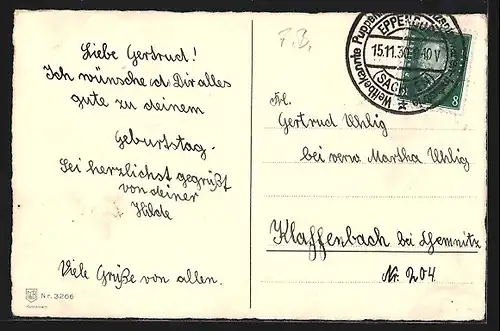 Liebe Gertrud!
Ich wünsche Dir alles
gute zu deinem
Geburtstag.
Sei herzlichst gegrüßt
von deiner
Hilde
Viele Grüße von allen.
Nr. 3266
F.B.
Weltbekannte Puppen
EPPENDORF
15.11.30 10 V
(SACHSEN)
8
Frl.
Gertrud Uhlig
bei verw. Martha Uhlig
Klaffenbach bei Chemnitz
Nr. 204.